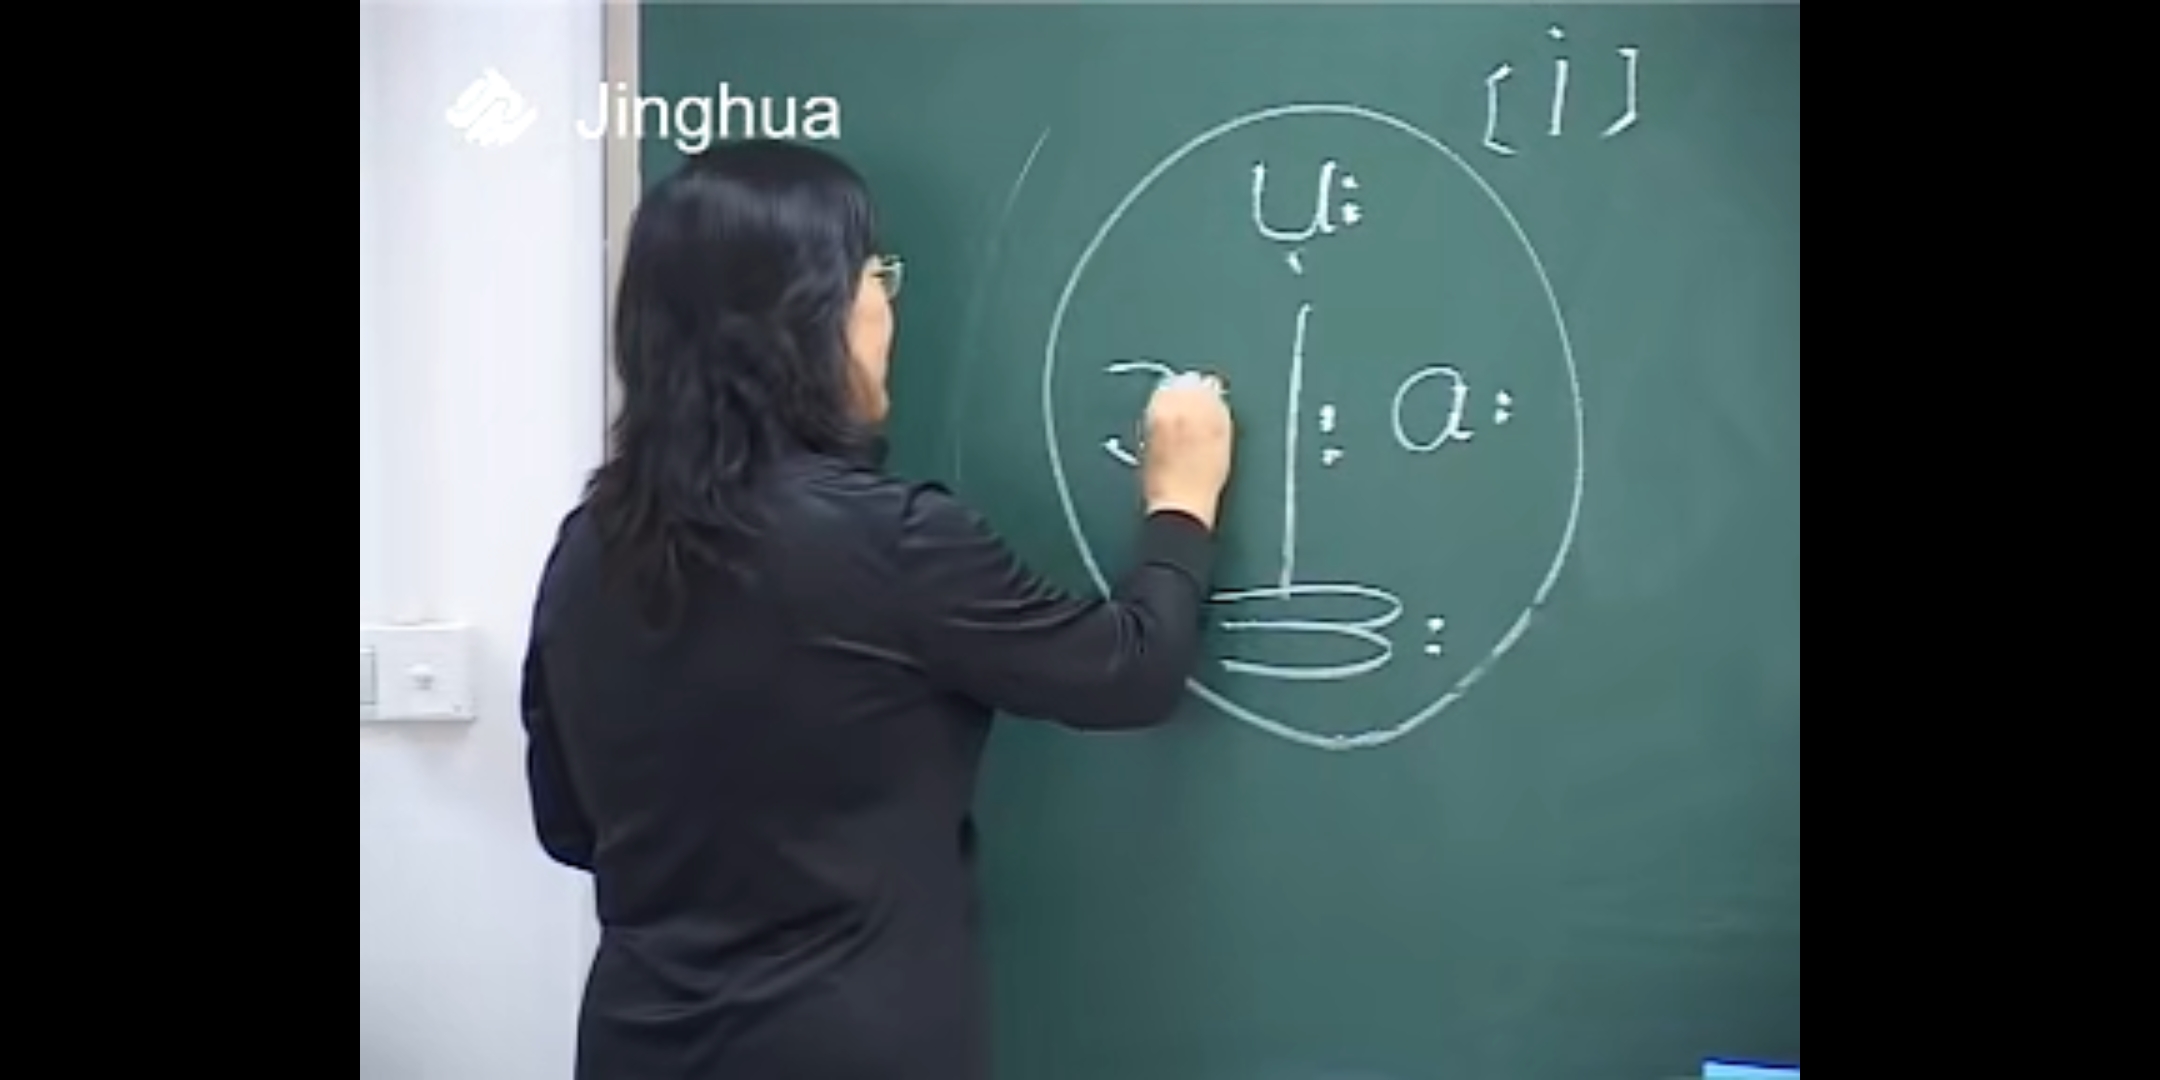 Jinghua
[i]
u:
i: a:
з: